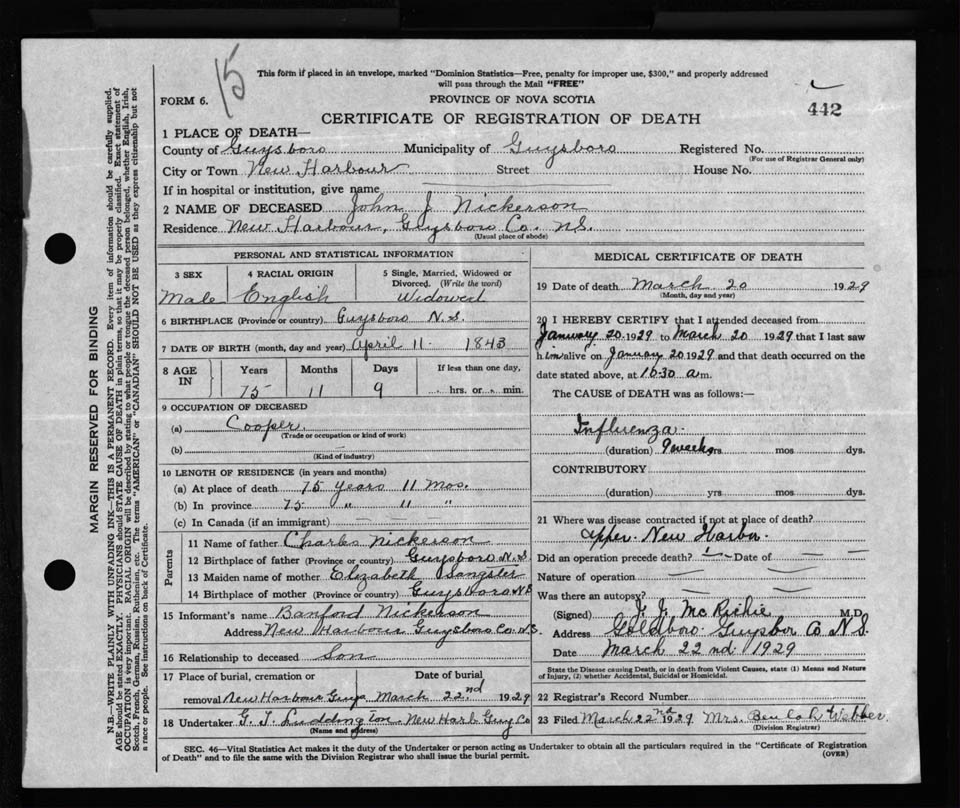 15
This form if placed in an envelope, marked "Dominion Statistics—Free, penalty for improper use, $300," and properly addressed
will pass through the Mail "FREE"
FORM 6.
PROVINCE OF NOVA SCOTIA
442
CERTIFICATE OF REGISTRATION OF DEATH
1 PLACE OF DEATH—
County of Guysboro Municipality of Guysboro Registered No.
(For use of Registrar General only)
City or Town New Harbour Street House No.
If in hospital or institution, give name
2 NAME OF DECEASED John J Nickerson
Residence New Harbour, Guysboro Co. N.S.
(Usual place of abode)
PERSONAL AND STATISTICAL INFORMATION
3 SEX 4 RACIAL ORIGIN 5 Single, Married, Widowed or
Divorced. (Write the word)
Male English Widowed
6 BIRTHPLACE (Province or country) Guysboro N.S.
7 DATE OF BIRTH (month, day and year) April 11 1843
8 AGE IN Years Months Days If less than one day,
75 11 9 hrs. or min.
9 OCCUPATION OF DECEASED
(a) Cooper
(Trade or occupation or kind of work)
(b)
(Kind of industry)
10 LENGTH OF RESIDENCE (in years and months)
(a) At place of death 75 years 11 mos.
(b) In province 75 " 11 "
(c) In Canada (if an immigrant)
Parents
11 Name of father Charles Nickerson
12 Birthplace of father (Province or country) Guysboro N.S.
13 Maiden name of mother Elizabeth Sangster
14 Birthplace of mother (Province or country) Guysboro N.S.
15 Informant's name Banford Nickerson
Address New Harbour Guysboro Co. N.S.
16 Relationship to deceased Son
17 Place of burial, cremation or Date of burial
removal New Harbour Guys March 22nd 1929
18 Undertaker G. T. Luddington New Harb Guy Co
(Name and address)
MEDICAL CERTIFICATE OF DEATH
19 Date of death March 20 1929
(Month, day and year)
20 I HEREBY CERTIFY that I attended deceased from
January 20 1929 to March 20 1929 that I last saw
him alive on January 20 1929 and that death occurred on the
date stated above, at 10.30 a m.
The CAUSE of DEATH was as follows:—
Influenza
(duration) 9 weeks yrs mos dys.
CONTRIBUTORY
(duration) yrs mos dys.
21 Where was disease contracted if not at place of death?
Upper New Harbor
Did an operation precede death? Date of
Nature of operation
Was there an autopsy?
(Signed) McRichie M.D.
Address Goldboro Guysbor Co N.S.
Date March 22nd 1929
State the Disease causing Death, or in death from Violent Causes, state (1) Means and Nature
of Injury, (2) whether Accidental, Suicidal or Homicidal.
22 Registrar's Record Number
23 Filed March 22nd 1929 Mrs. Ben Webber
(Division Registrar)
SEC. 46—Vital Statistics Act makes it the duty of the Undertaker or person acting as Undertaker to obtain all the particulars required in the "Certificate of Registration
of Death" and to file the same with the Division Registrar who shall issue the burial permit.
(OVER)
MARGIN RESERVED FOR BINDING
N.B.—WRITE PLAINLY, WITH UNFADING INK—THIS IS A PERMANENT RECORD. Every item of information should be carefully supplied.
AGE should be stated EXACTLY. PHYSICIANS should STATE CAUSE OF DEATH in plain terms, so that it may be properly classified. Exact statement of
OCCUPATION is very important. RACIAL ORIGIN will be described by stating to what people or tongue the deceased person belonged, whether English, Irish,
Scotch, French, German, Russian, Ruthenian, etc. The terms "AMERICAN" or "CANADIAN" SHOULD NOT BE USED as they express citizenship but not
a race or people. See instructions on back of Certificate.